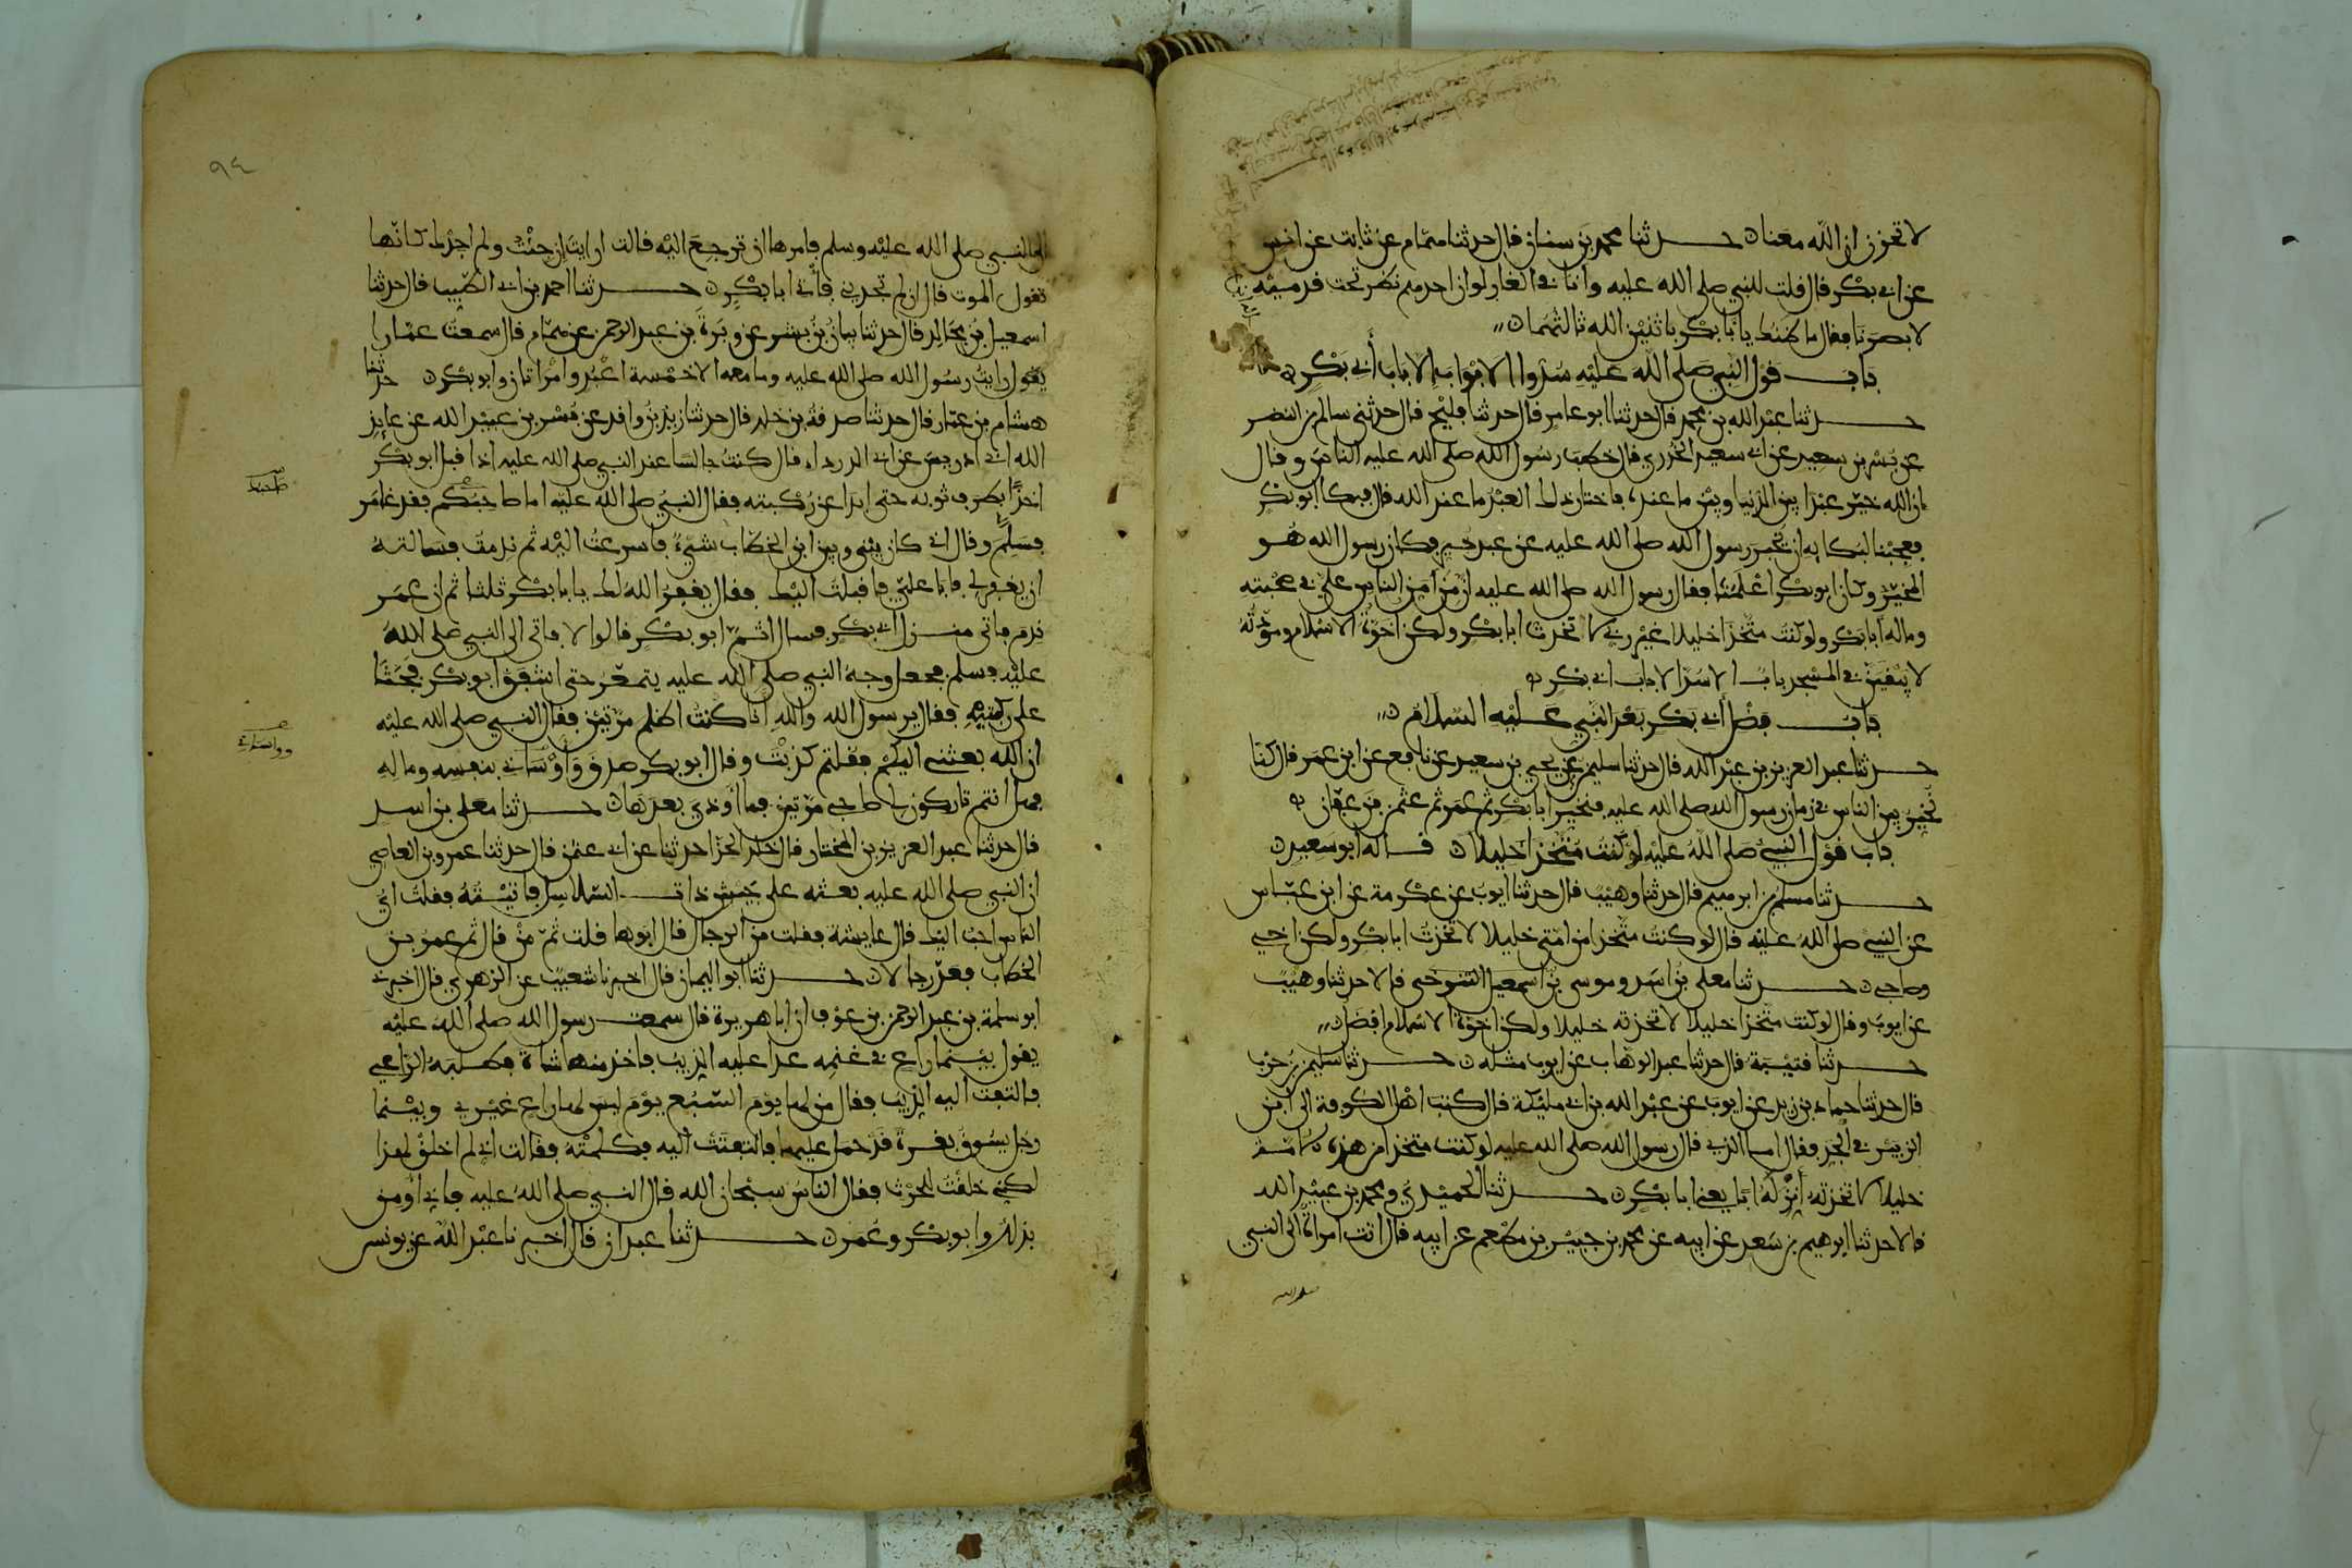 لا تحزن ان الله معنا حدثنا محمد بن سنان قال حدثنا همام عن ثابت عن انس
عن ابي بكر قال قلت للنبي صلى الله عليه وانا في الغار لو ان احدهم نظر تحت قدميه
لابصرنا فقال ما ظنك يا با بكر باثنين الله ثالثهما
باب قول النبي صلى الله عليه سدوا الابواب الا باب أبي بكر
حدثنا عبد الله بن محمد قال حدثنا ابو عامر قال حدثنا فليح قال حدثني سالم بن النضر
عن بسر بن سعيد عن ابي سعيد الخدري قال خطب رسول الله صلى الله عليه الناس وقال
ان الله خيّر عبدا بين الدنيا وبين ما عنده فاختار ذلك العبد ما عند الله قال فبكا ابو بكر
فعجبنا لبكايه ان يخبر رسول الله صلى الله عليه عن عبد خير فكان رسول الله هو
المخيّر وكان ابو بكر اعلمنا فقال رسول الله صلى الله عليه ان من امن الناس علي في صحبته
وماله أبا بكر ولو كنت متخذا خليلا غير ربي لاتخذت ابا بكر ولكن اخوة الاسلام ومودته
لا يبقين في المسجد باب الا سد الا باب ابي بكر
باب فضل أبي بكر بعد النبي عليه السلام
حدثنا عبد العزيز بن عبد الله قال حدثنا سليمن عن يحيى بن سعيد عن نافع عن ابن عمر قال كنا
نخير بين الناس في زمان رسول الله صلى الله عليه فنخير ابا بكر ثم عمر ثم عثمن بن عفان
باب قول النبي صلى الله عليه لو كنت متخذا خليلا قاله ابو سعيد
حدثنا مسلم بن ابرهيم قال حدثنا وهيب قال حدثنا ايوب عن عكرمة عن ابن عباس
عن النبي صلى الله عليه قال لو كنت متخذا من امتي خليلا لاتخذت ابا بكر ولكن اخي
وصاحبي حدثنا معلى بن اسد وموسى بن اسمعيل التنوخي قالا حدثنا وهيب
عن ايوب وقال لو كنت متخذا خليلا لاتخذته خليلا ولكن اخوة الاسلام افضل
حدثنا قتيبة قال حدثنا عبد الوهاب عن ايوب مثله حدثنا سليمن بن حرب
قال حدثنا حماد بن زيد عن ايوب عن عبد الله بن ابي مليكة قال كتب اهل الكوفة الى ابن
الزبير في الجد فقال اما الذي قال رسول الله صلى الله عليه لو كنت متخذا من هذه الامة
خليلا لاتخذته أنزله ابا يعني ابا بكر حدثنا الحميدي ومحمد بن عبيد الله
قالا حدثنا ابرهيم بن سعد عن ابيه عن محمد بن جبير بن مطعم عن ابيه قال اتت امراة الى النبي
صلى الله
٩٤
الى النبي صلى الله عليه وسلم فامرها ان ترجع اليه قالت ارايت إن جئت ولم اجدك كانها
تقول الموت قال ان لم تجديني فأتي ابا بكر حدثنا احمد بن ابي الطيب قال حدثنا
اسمعيل بن مجالد قال حدثنا بيان بن بشر عن وبرة بن عبد الرحمن عن همام قال سمعت عمارا
يقول رايت رسول الله صلى الله عليه وما معه الا خمسة اعبد وامراتان وابو بكر حدثنا
هشام بن عمار قال حدثنا صدقة بن خلد قال حدثنا زيد بن واقد عن بسر بن عبيد الله عن عايذ
الله ابي ادريس عن ابي الدرداء قال كنت جالسا عند النبي صلى الله عليه اذ اقبل ابو بكر
اخذا بطرف ثوبه حتى ابدا عن ركبته فقال النبي صلى الله عليه اما صاحبكم فقد غامر
صاحبك
فسلم وقال اني كان بيني وبين ابن الخطاب شيء فاسرعت اليه ثم ندمت فسالته
ان يغفر لي فابا علي فاقبلت اليك فقال يغفر الله لك يا با بكر ثلثا ثم ان عمر
ندم فاتى منزل ابي بكر فسال اثم ابو بكر قالوا لا فاتى الى النبي صلى الله
عليه وسلم فجعل وجه النبي صلى الله عليه يتمعر حتى اشفق ابو بكر فجثا
على ركبتيه فقال يرسول الله والله انا كنت اظلم مرتين فقال النبي صلى الله عليه
ان الله بعثني اليكم فقلتم كذبت وقال ابو بكر صدق وأوساني بنفسه وماله
وواساني
فهل انتم تاركون لي صاحبي مرتين فما أوذي بعدها حدثنا معلى بن اسد
قال حدثنا عبد العزيز بن المختار قال خلد الحذا حدثنا عن ابي عثمن قال حدثنا عمرو بن العاصي
ان النبي صلى الله عليه بعثه على جيش ذات السلاسل فاتيته فقلت اي
الناس احب اليك قال عايشة فقلت من الرجال قال ابوها قلت ثم من قال ثم عمر بن
الخطاب فعد رجالا حدثنا ابو اليمان قال اخبرنا شعيب عن الزهري قال اخبرني
ابو سلمة بن عبد الرحمن بن عوف ان ابا هريرة قال سمعت رسول الله صلى الله عليه
يقول بينما راع في غنمه عدا عليه الذيب فاخذ منها شاة فطلبه الراعي
فالتفت اليه الذيب فقال من لها يوم السبع يوم ليس لها راع غيري وبينما
رجل يسوق بقرة قد حمل عليها فالتفتت اليه فكلمته فقالت اني لم اخلق لهذا
لكني خلقت للحرث فقال الناس سبحان الله قال النبي صلى الله عليه فاني أومن
بذلك وابو بكر وعمر حدثنا عبدان قال اخبرنا عبد الله عن يونس